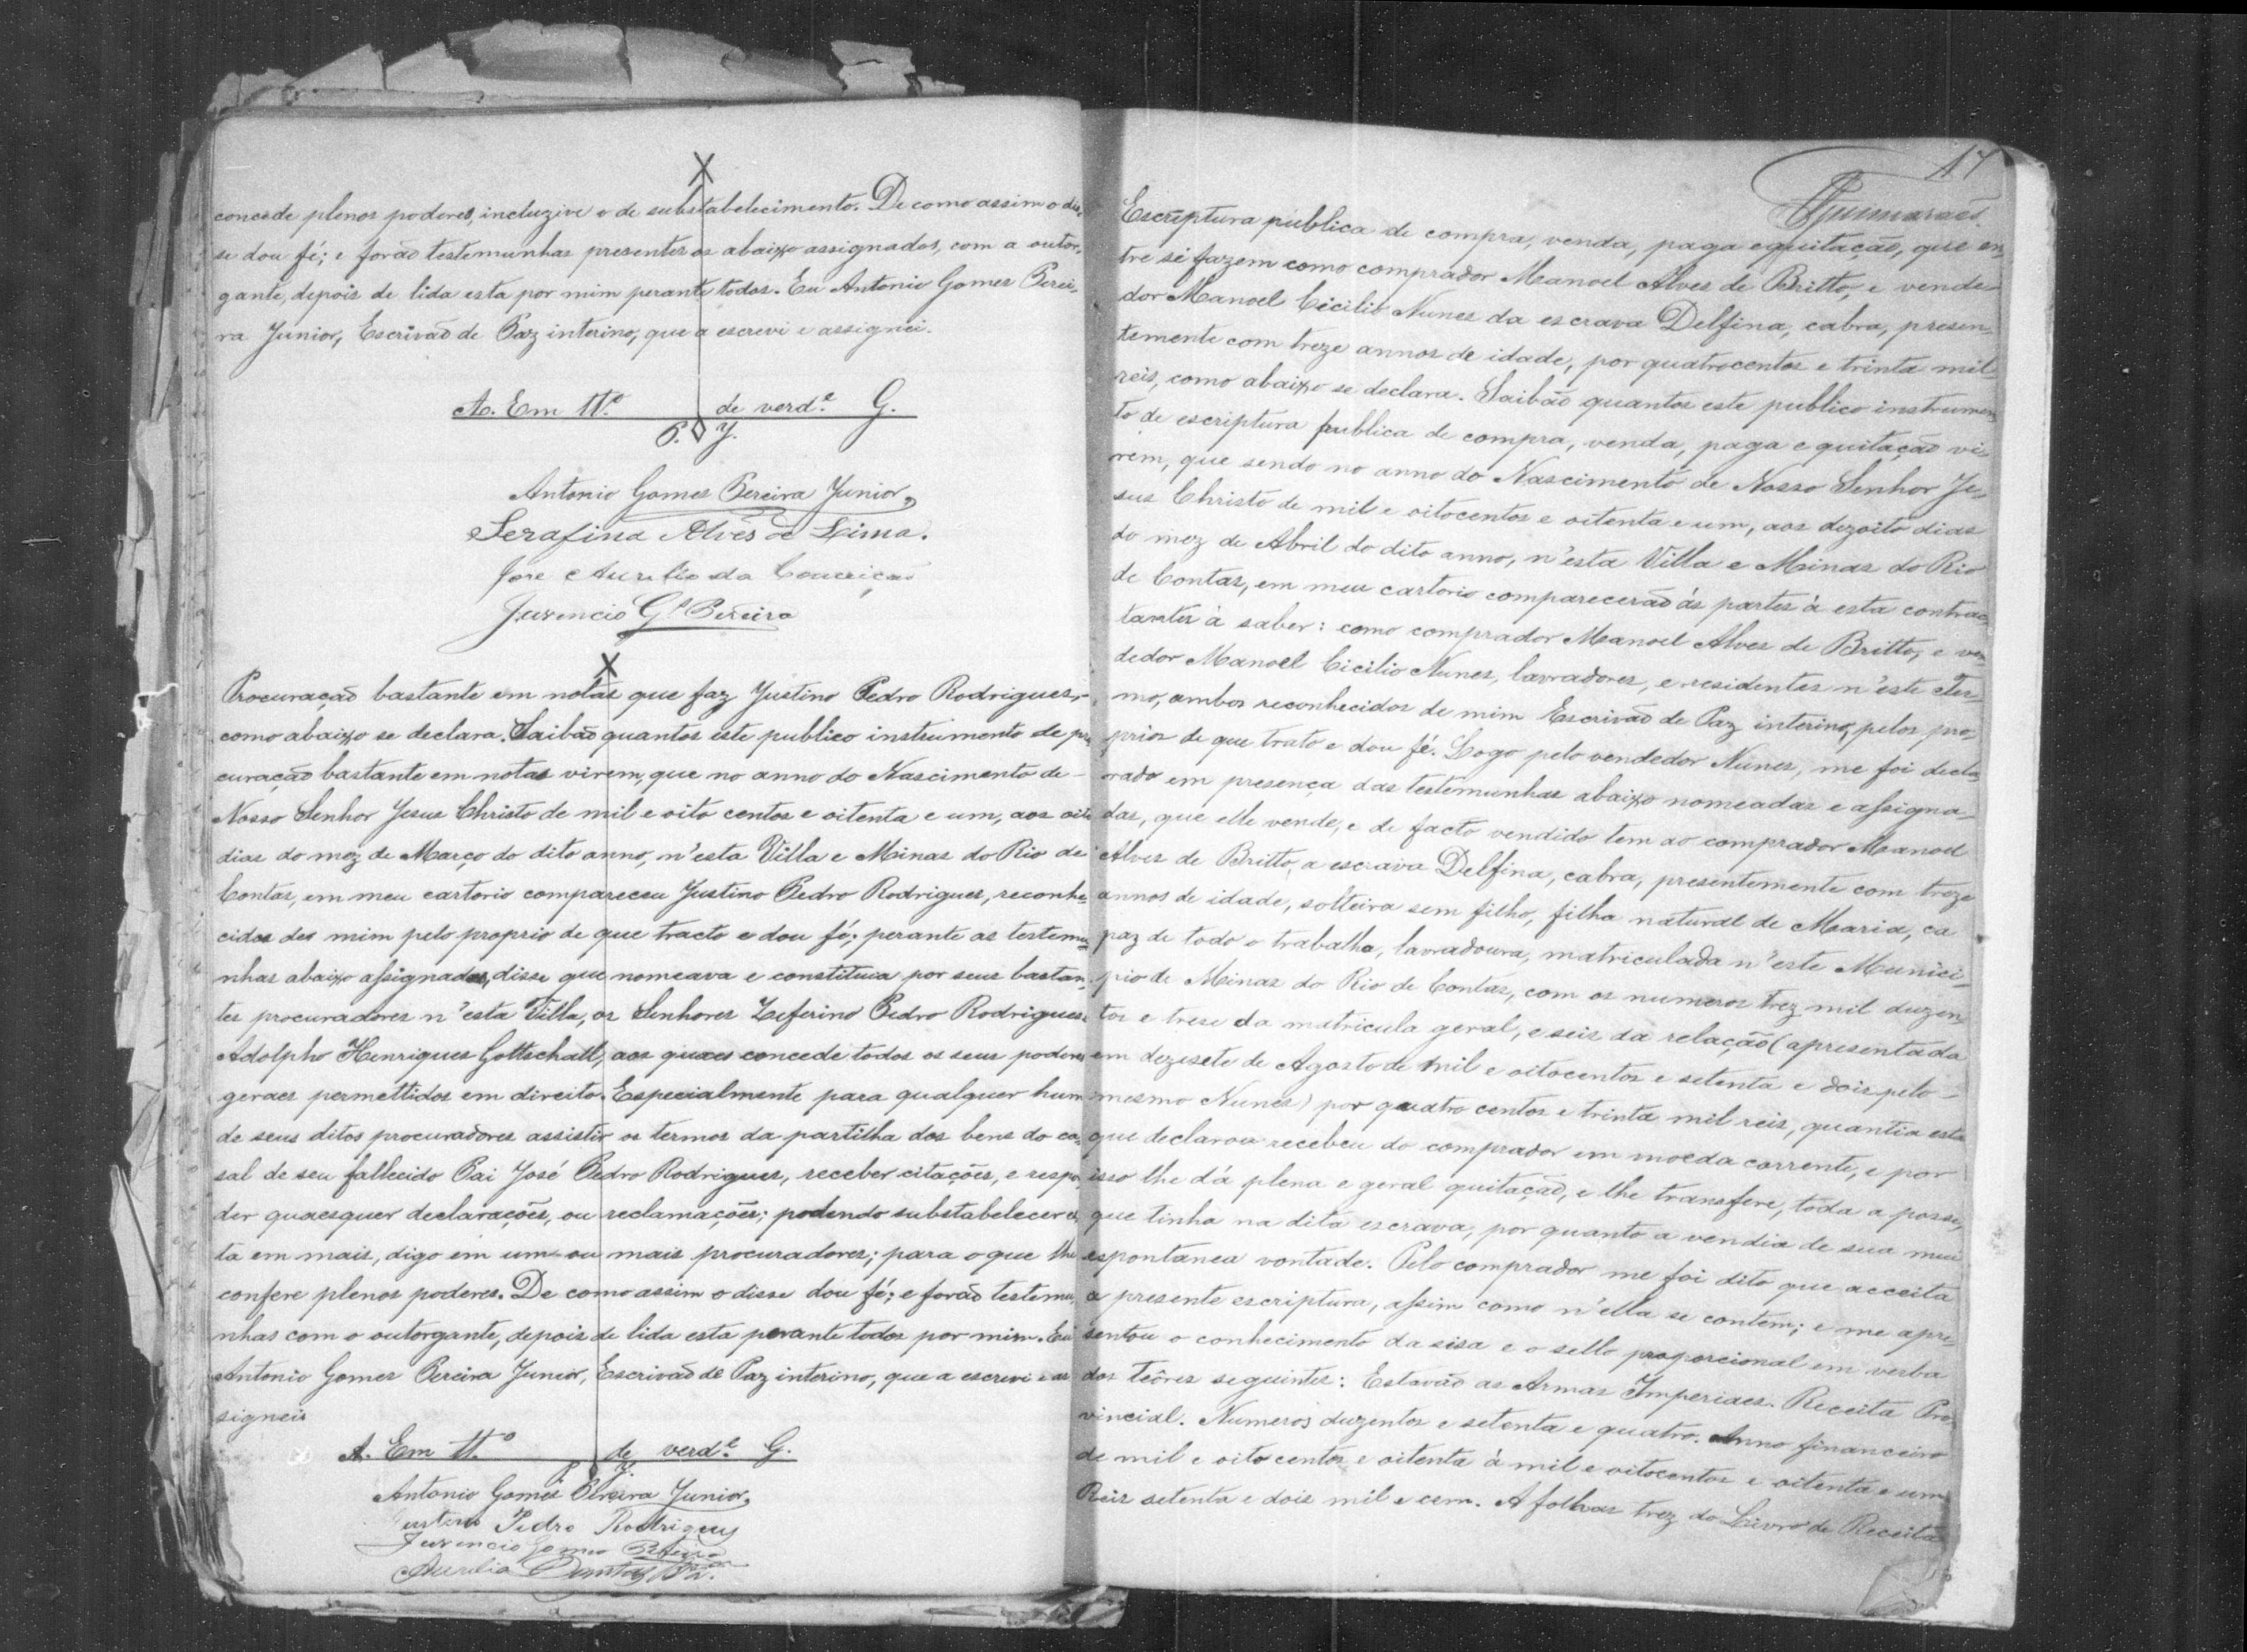 X
concede plenos poderes, incluzive o de substabelecimento. De como assim o dis,
se dou fé; e forão testemunhas presentes os abaixo assignados, com a outor,
gante, depois de lida esta por mim perante todos. Eu Antonio Gomes Perei,
ra Junior, Escrivão de Paz interino, que a escrevi e assignei.
A. Em tt.º de verd.e G.
P. J.
Antonio Gomes Pereira Junior,
Serafina Alves de Lima.
José Aurelio da Conceição
Juvencio Gs Pereira
X
Procuração bastante em notas que faz Justino Pedro Rodrigues,-
como abaixo se declara. Saibão quantos este publico instrumento de pro
curação bastante em notas virem, que no anno do Nascimento de -
Nosso Senhor Jesus Christo de mil e oito centos e oitenta e um, aos oito
dias do mez de Março do dito anno, n'esta Villa e Minas do Rio de
Contas, em meu cartorio compareceu Justino Pedro Rodrigues, reconhe-
cidos des mim pelo proprio de que tracto e dou fé; perante as testemu-
nhas abaixo assignadas, disse que nomeava e constituia por seus bastan-
tes procuradores n'esta Villa, os Senhores Zeferino Pedro Rodrigues e
Adolpho Henriques Gottschall, aos quaes concede todos os seus poderes
geraes permettidos em direito. Especialmente para qualquer hum
de seus ditos procuradores assistir os termos da partilha dos bens do ca-
sal de seu fallecido Pai José Pedro Rodrigues, receber citações, e respon,
der quaesquer declarações, ou reclamações; podendo substabelecer es,
ta em mais, digo em um ou mais procuradores; para o que lhe
confere plenos poderes. De como assim o disse dou fé; e forão testemu,
nhas com o outorgante, depois de lida esta perante todos por mim. Eu
Antonio Gomes Pereira Junior, Escrivão de Paz interino, que a escrevi e as
signei.
A. Em tt.º de verd.e G.
P. J.
Antonio Gomes Pereira Junior,
Justino Pedro Rodrigues
Juvencio Gomes Pereira
Aurelio
17
Guimaraes.
Escriptura publica de compra, venda, paga e quitação, que en,
tre si fazem como comprador Manoel Alves de Britto, e vende
dor Manoel Cicilio Nunes da escrava Delfina, cabra, presen,
temente com treze annos de idade, por quatrocentos e trinta mil
reis, como abaixo se declara. Saibão quantos este publico instrumen,
to de escriptura publica de compra, venda, paga e quitação vi,
rem, que sendo no anno do Nascimento de Nosso Senhor Je,
sus Christo de mil e oitocentos e oitenta e um, aos dezoito dias
do mez de Abril do dito anno, n'esta Villa e Minas do Rio
de Contas, em meu cartorio comparecerão ás partes à esta contrac,
tantes à saber: como comprador Manoel Alves de Britto, e ven,
dedor Manoel Cicilio Nunes, lavradores, e residentes n'este Ter,
mo, ambos reconhecidos de mim Escrivão de Paz interino, pelos pro,
prios de que trato e dou fé. Logo pelo vendedor Nunes, me foi decla,
rado em presença das testemunhas abaixo nomeadas e assigna,
das, que elle vende, e de facto vendido tem ao comprador Manoel
Alves de Britto, a escrava Delfina, cabra, presentemente com treze
annos de idade, solteira sem filho, filha natural de Maria, ca
paz de todo o trabalho, lavradoura, matriculada n'este Munici-
pio de Minas do Rio de Contas, com os numeros trez mil duzen,
tos e trese da matricula geral, e seis da relação (apresentada
em dezesete de Agosto de mil e oitocentos e setenta e dois pelo -
mesmo Nunes) por quatro centos e trinta mil reis, quantia esta
que declarou recebeu do comprador em moeda corrente, e por
isso lhe dá plena e geral quitação, e lhe transfere, toda a posse,
que tinha na dita escrava, por quanto a vendia de sua mui
espontanea vontade. Pelo comprador me foi dito que acceita
a presente escriptura, assim como n'ella se contem; e me apre-
sentou o conhecimento da sisa e o sello proporcional em verba
dos teôres seguintes: Estavão as Armas Imperiaes. Receita Pro,
vincial. Numeros duzentos e setenta e quatro. Anno financeiro
de mil e oito centos e oitenta à mil e oitocentos e oitenta e um,
Reis setenta e dois mil e cem. A folhas trez do Livro de Receita